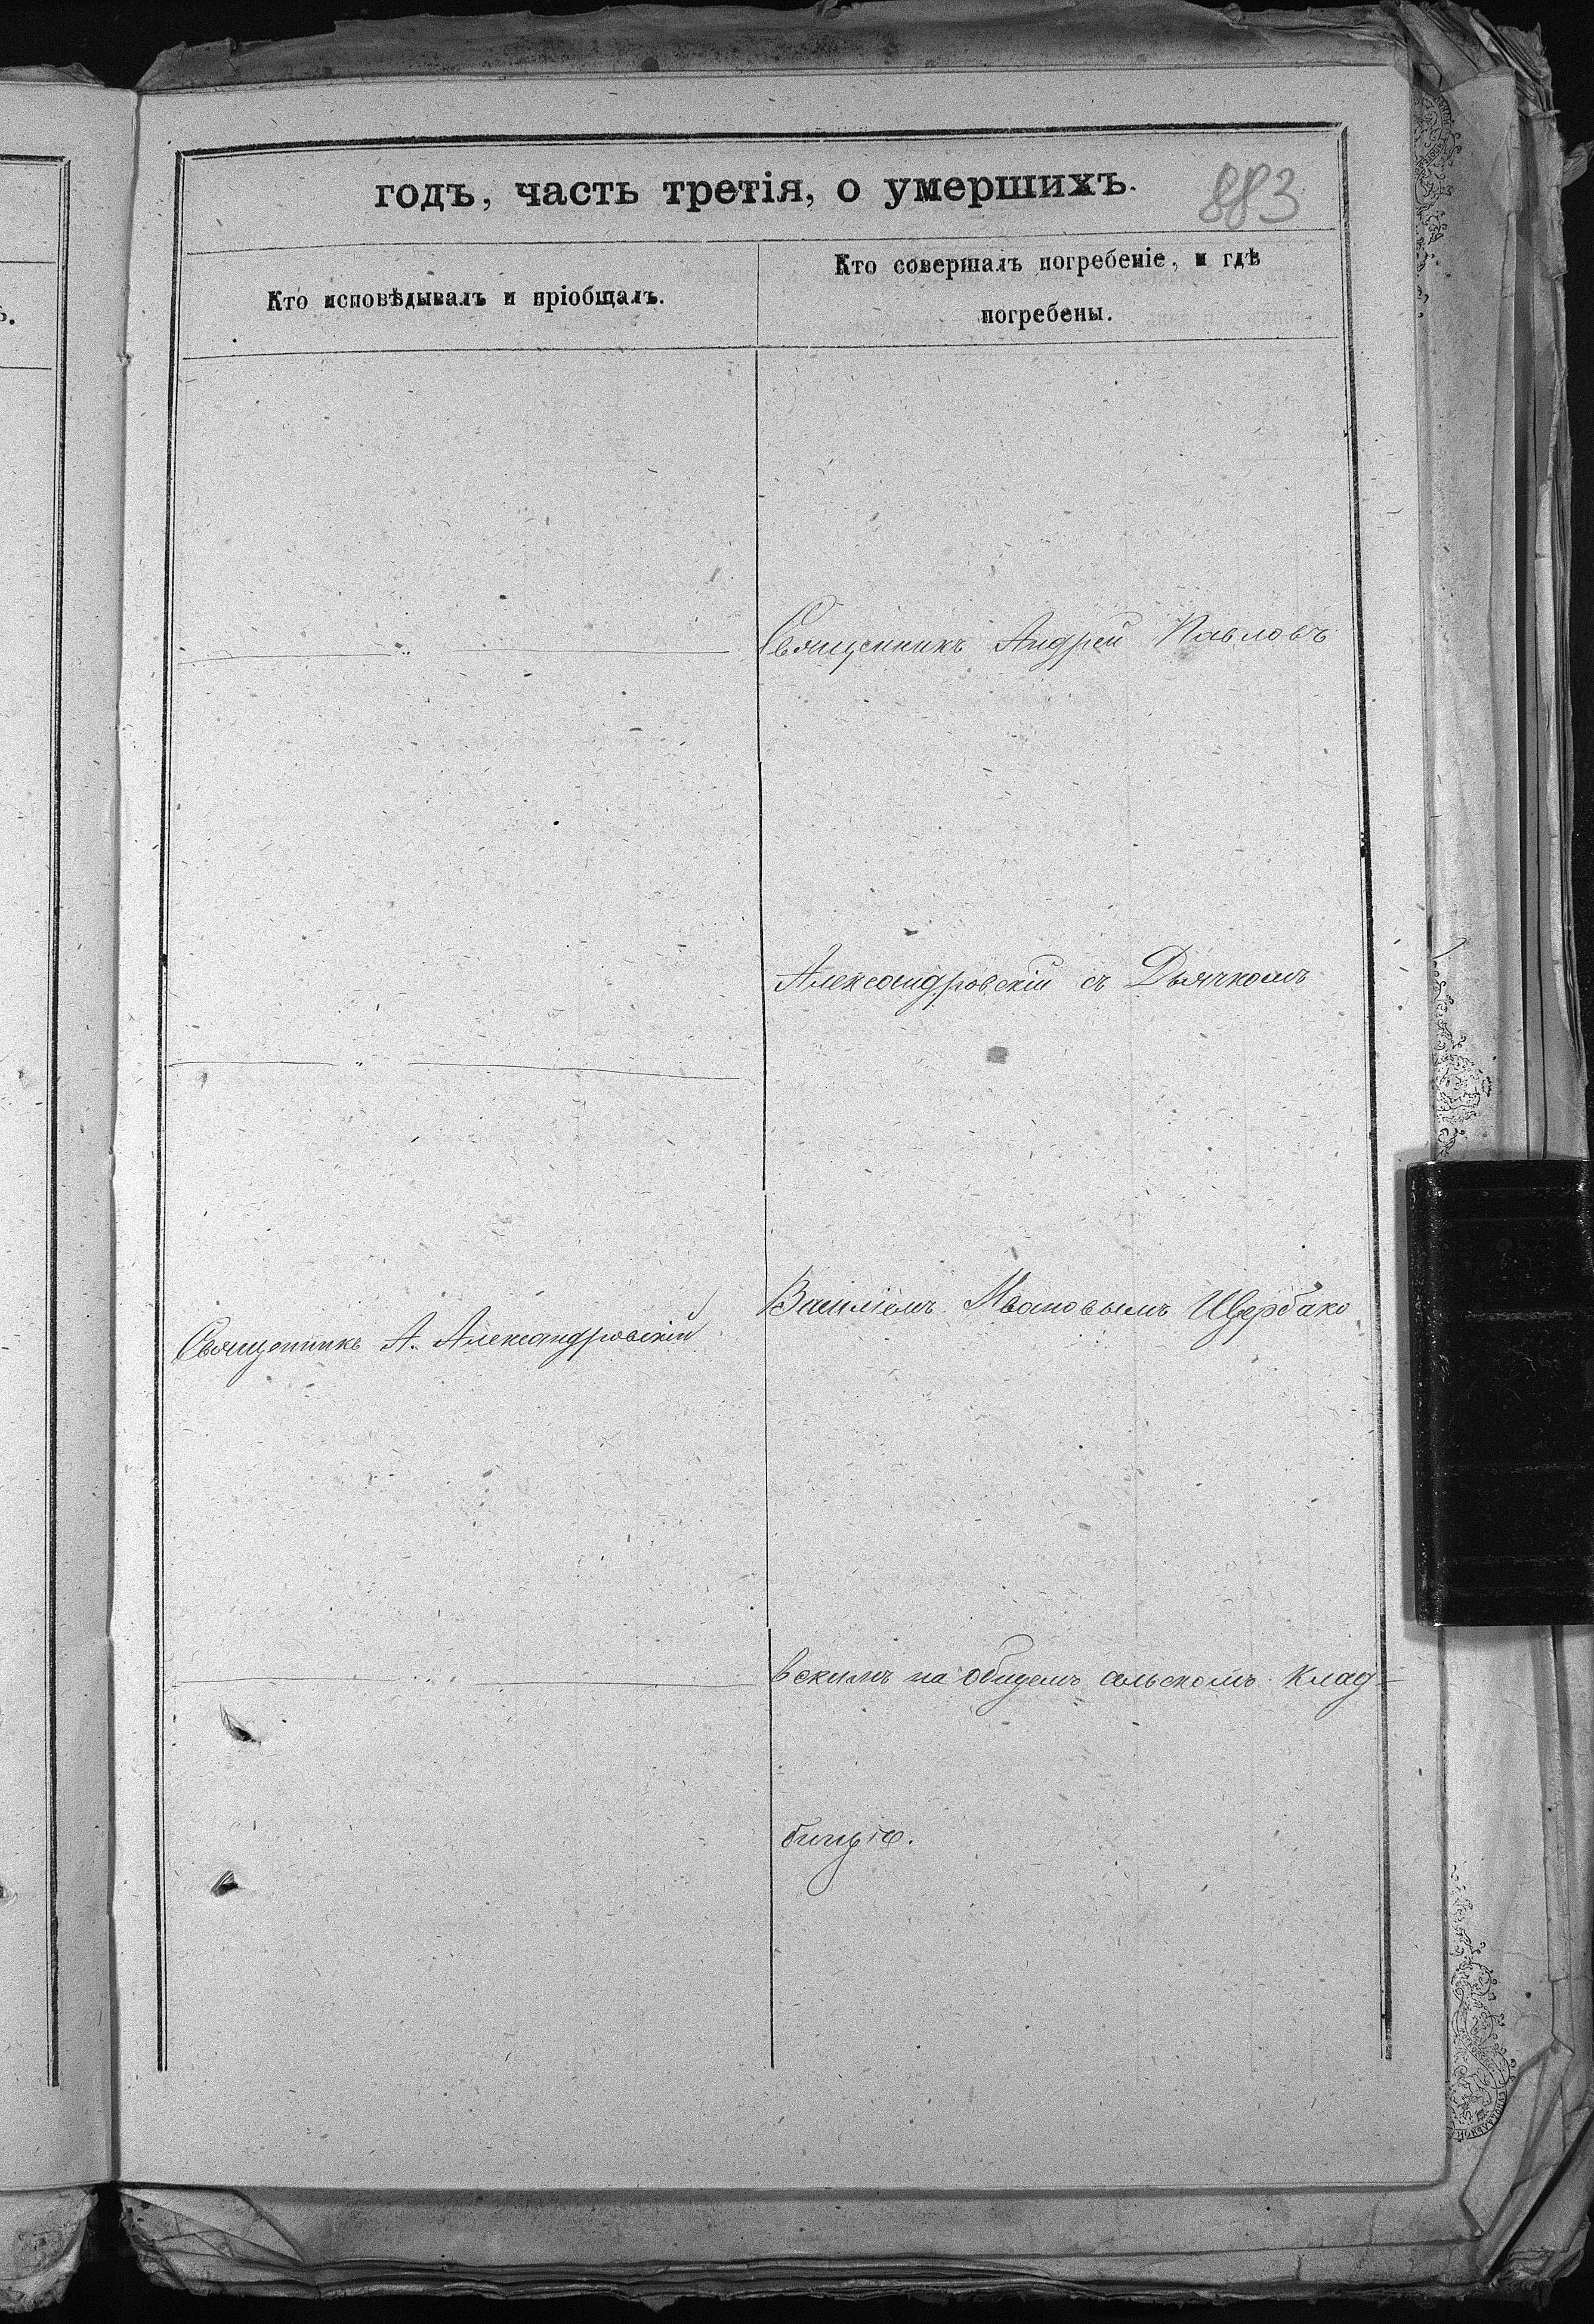 годъ, часть третія, о умершихъ.
883
Кто исповѣдывалъ и пріобщалъ.
Кто совершалъ погребеніе, и гдѣ
погребены.
Священникъ Андрей Павловъ
Александровскій съ Дьячкомъ
Василіемъ Ивановымъ Щербако
Священникъ А. Александровскій
вскимъ на общемъ сельскомъ клад-
бищѣ.